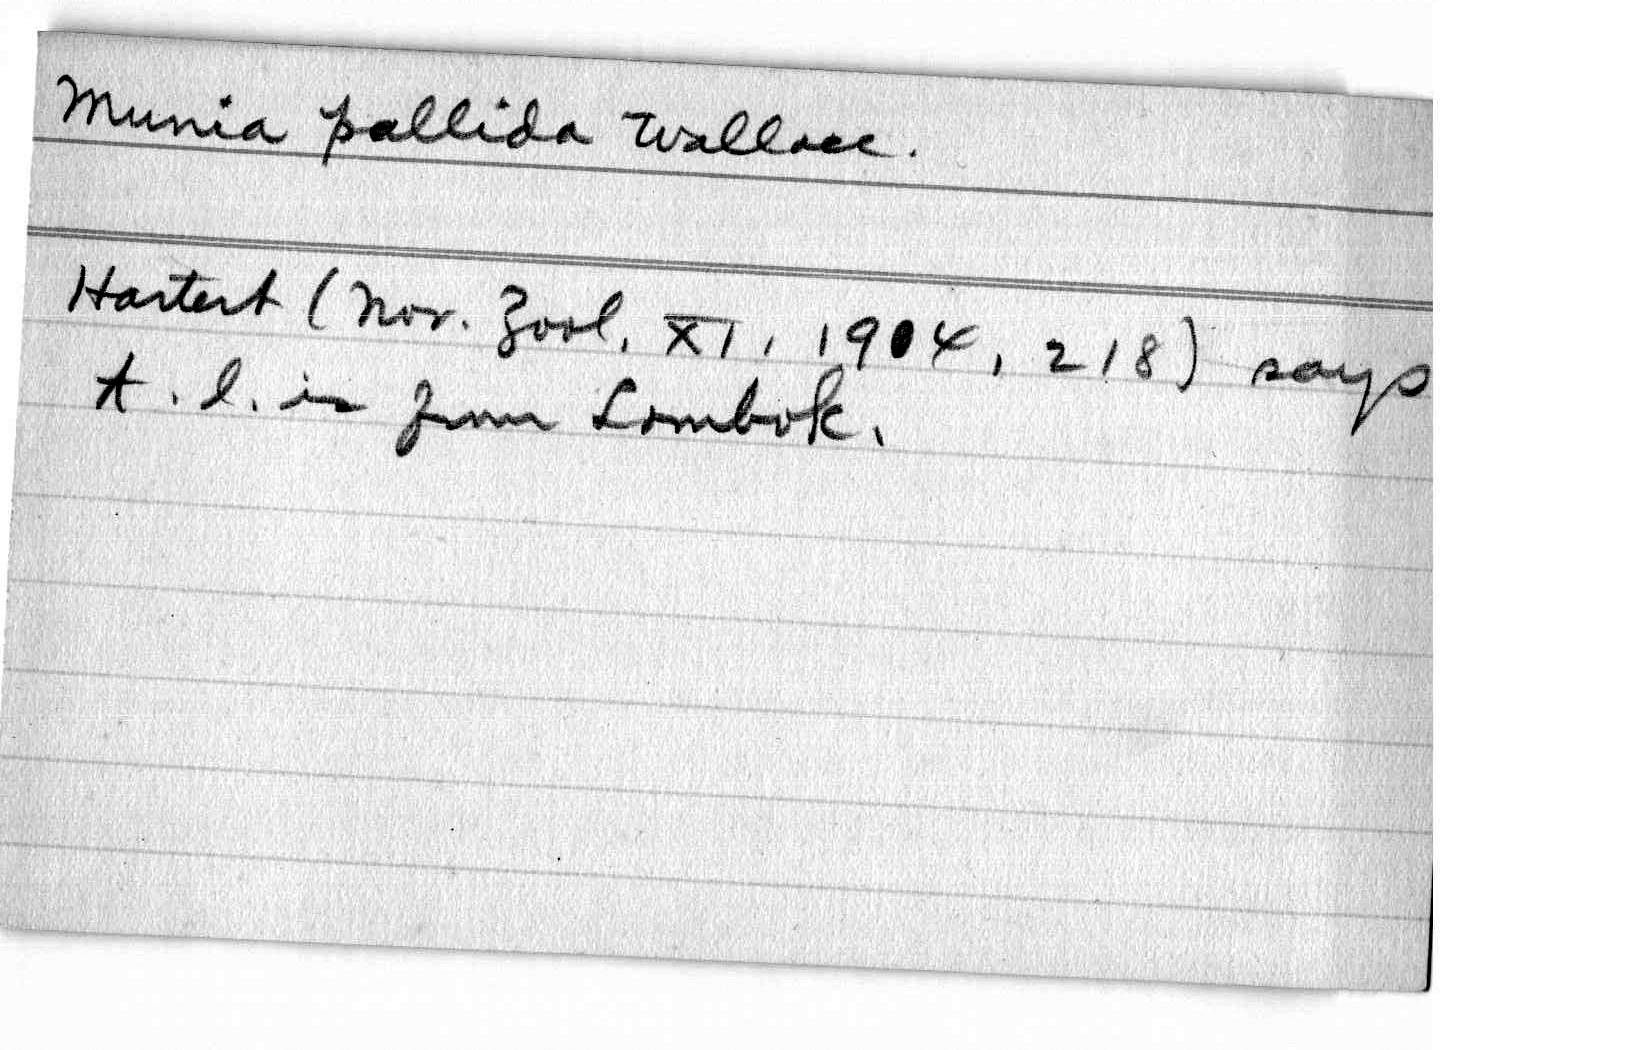 Munia pallida Wallace.
Hartert (Nov. Zool, XI, 1904, 218) says
t. l. is from Lombok.